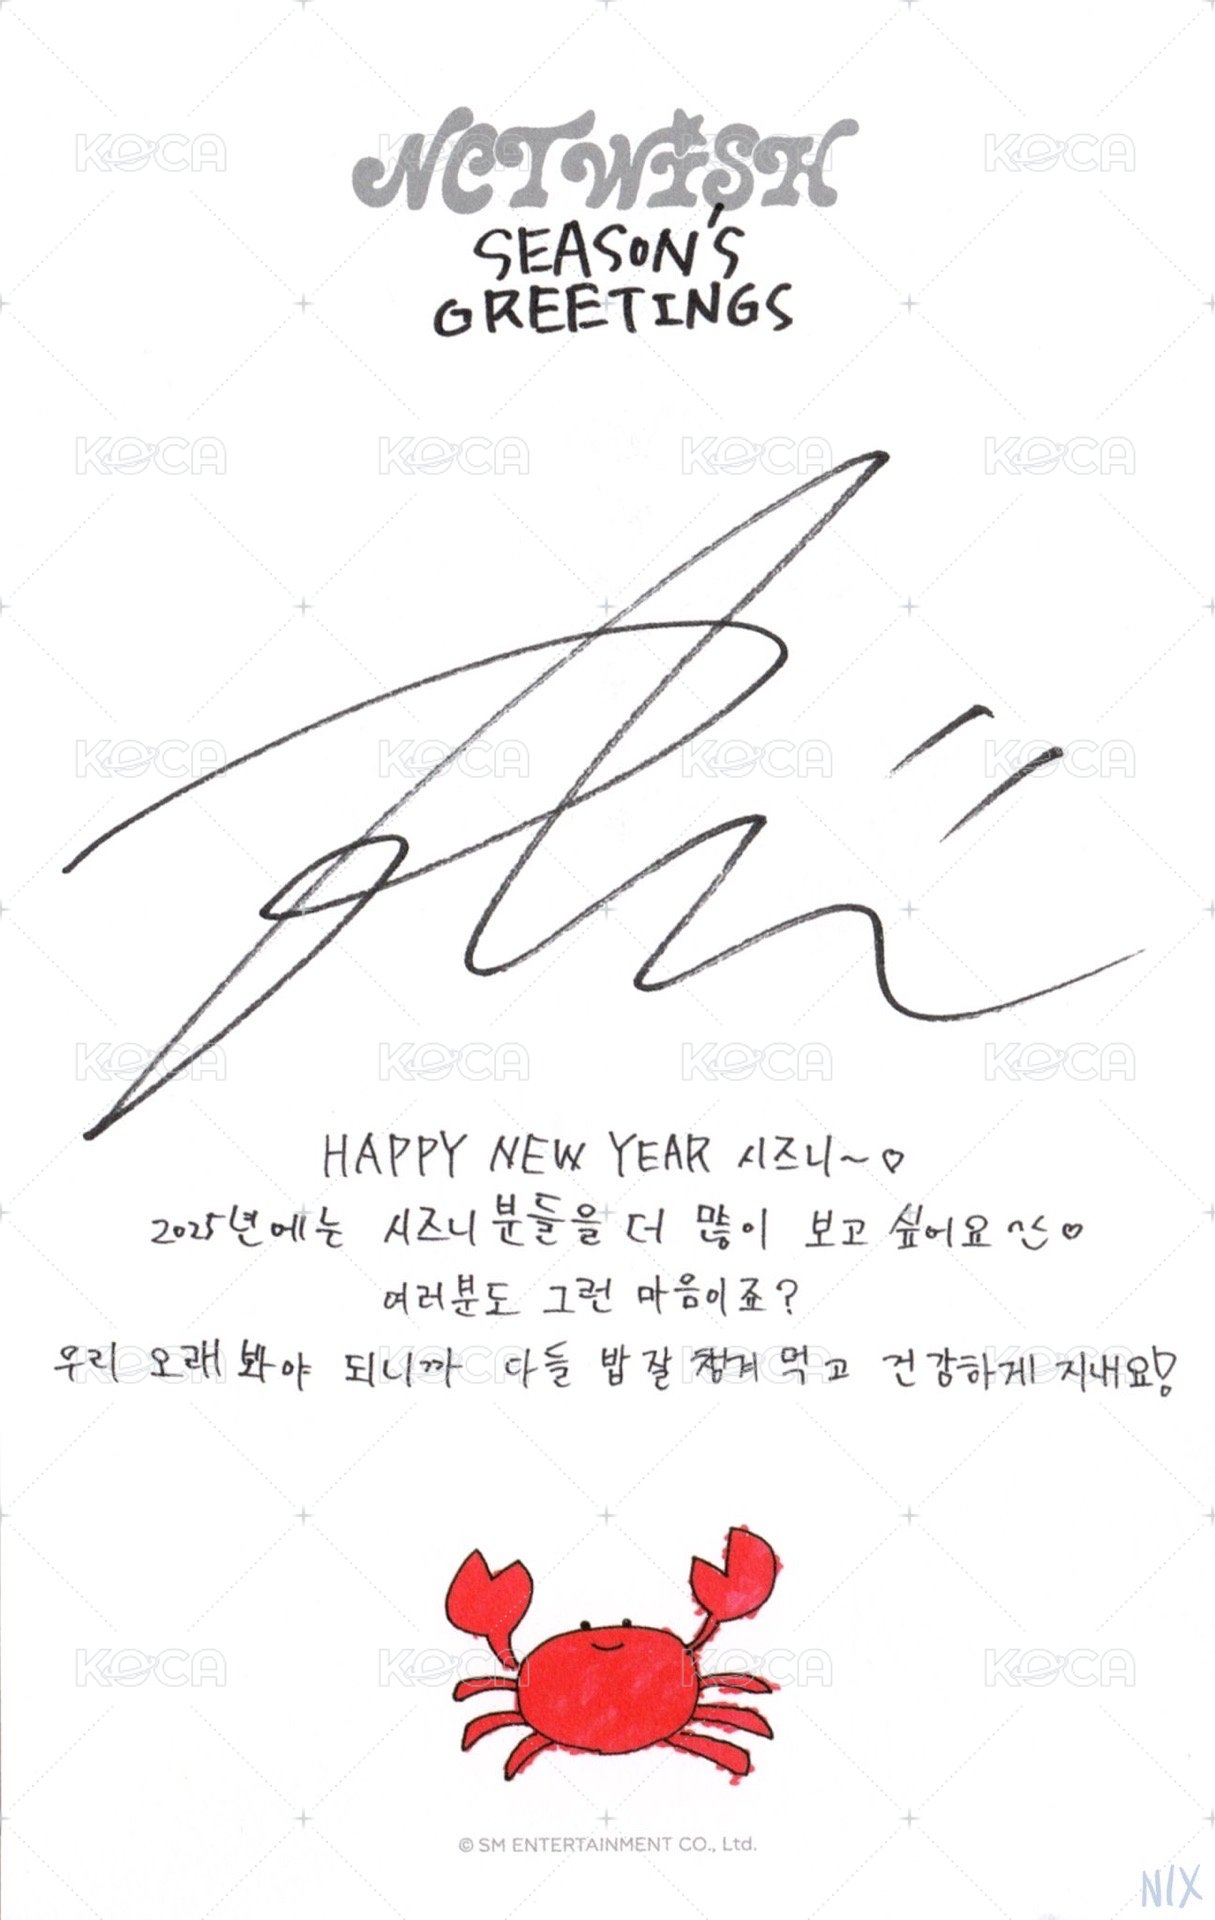 NCT WISH
SEASON'S
GREETINGS
HAPPY NEW YEAR 시즈니~♡
2025년에는 시즈니분들을 더 많이 보고 싶어요 ♡
여러분도 그런 마음이죠?
우리 오래 봐야 되니까 다들 밥 잘 챙겨 먹고 건강하게 지내요!
© SM ENTERTAINMENT CO., Ltd.
N/X
KOCA